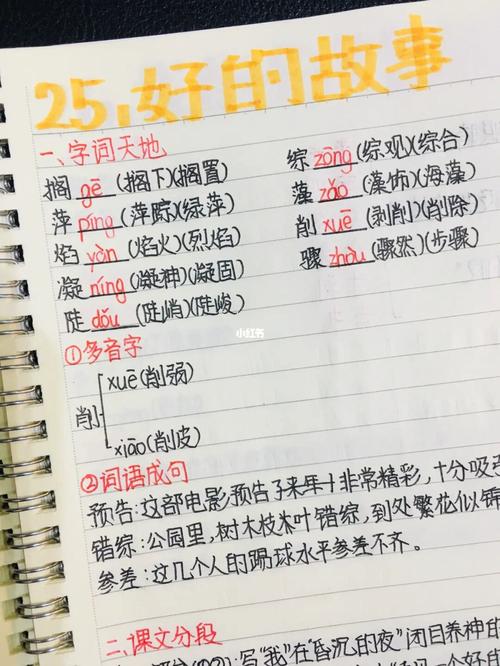 25、好的故事
一、字词天地
搁 gē (搁下)(搁置) 综 zōng (综观)(综合)
萍 píng (萍踪)(绿萍) 藻 zǎo (藻饰)(海藻)
焰 yàn (焰火)(烈焰) 削 xuē (剥削)(削除)
凝 níng (凝神)(凝固) 骤 zhòu (骤然)(步骤)
陡 dǒu (陡峭)(陡峻)
①多音字
削 xuē(削弱)
xiāo(削皮)
小红书
②词语成句
预告:这部电影预告了来年十非常精彩,十分吸引
错综:公园里,树木枝木叶错综,到处繁花似锦
参差:这几个人的踢球水平参差不齐。
二、课文分段
写“我”在“昏沉的夜”闭目养神的
一个好的